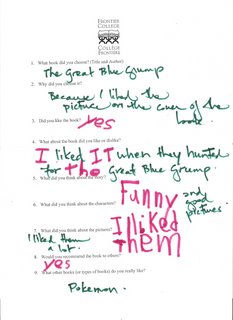 FRONTIER
COLLEGE
COLLÈGE
FRONTIÈRE
1. What book did you choose? (Title and Author)
The Great Blue Grump
2. Why did you choose it?
Because I liked the
picture on the cover of the
book.
3. Did you like the book?
yes
4. What about the book did you like or dislike?
I liked IT when they hunted
for the great Blue Grump.
5. What did you think about the story?
Funny and
good
pictures.
6. What did you think about the characters?
I liked
them
7. What did you think about the pictures?
I liked them
a lot.
8. Would you recommend the book to others?
yes
9. What other books (or types of books) do you really like?
Pokemon.